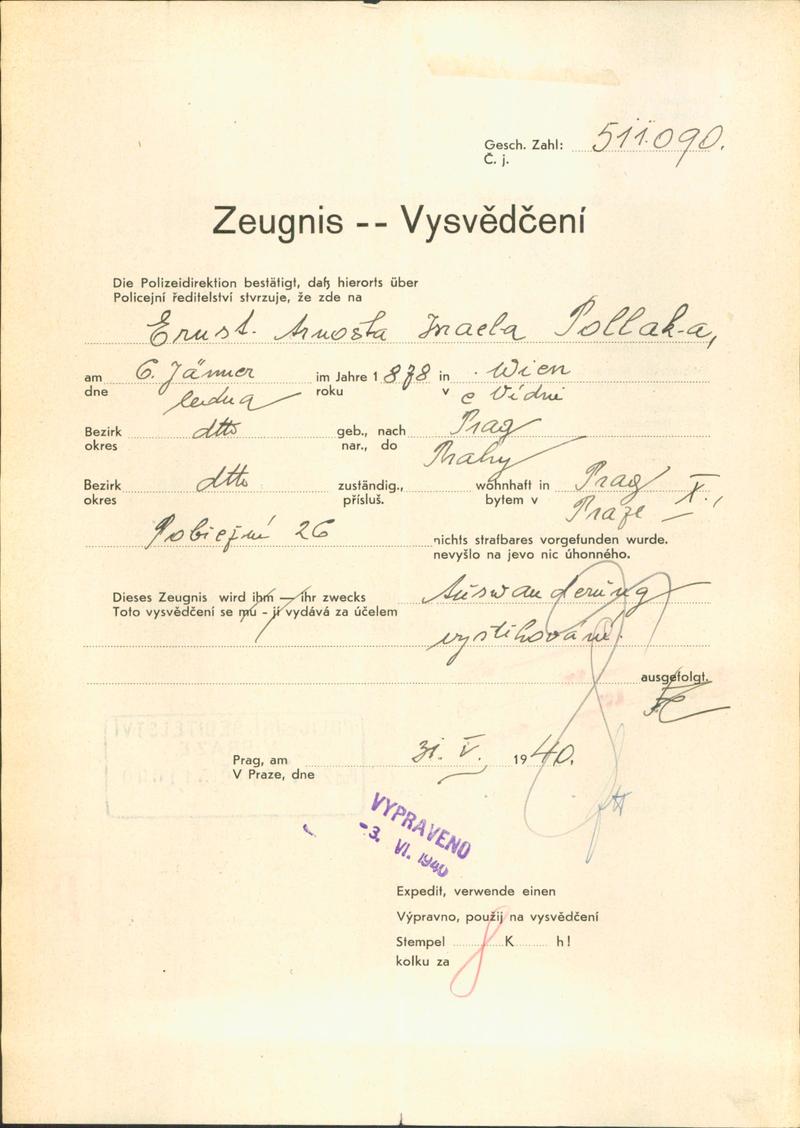 Gesch. Zahl: 511.090.
Č. j.
Zeugnis -- Vysvědčení
Die Polizeidirektion bestätigt, daß hierorts über
Policejní ředitelství stvrzuje, že zde na
Ernst. Arnošta Israela Pollak-a,
am 6. Jänner im Jahre 1878 in Wien
dne ledna roku v e Vídni
Bezirk dtto geb., nach Prag
okres nar., do Prahy
Bezirk dtto zuständig., wohnhaft in Prag X.,
okres přísluš. bytem v Praze
Pobřežní 26 nichts strafbares vorgefunden wurde.
nevyšlo na jevo nic úhonného.
Dieses Zeugnis wird ihm — ihr zwecks Auswanderung
Toto vysvědčení se mu - jí vydává za účelem
vystěhování.
ausgefolgt.
Prag, am 31. V. 1940.
V Praze, dne
VYPRAVENO
-3. VI. 1940
Expedit, verwende einen
Výpravno, použij na vysvědčení
Stempel 8 K h!
kolku za